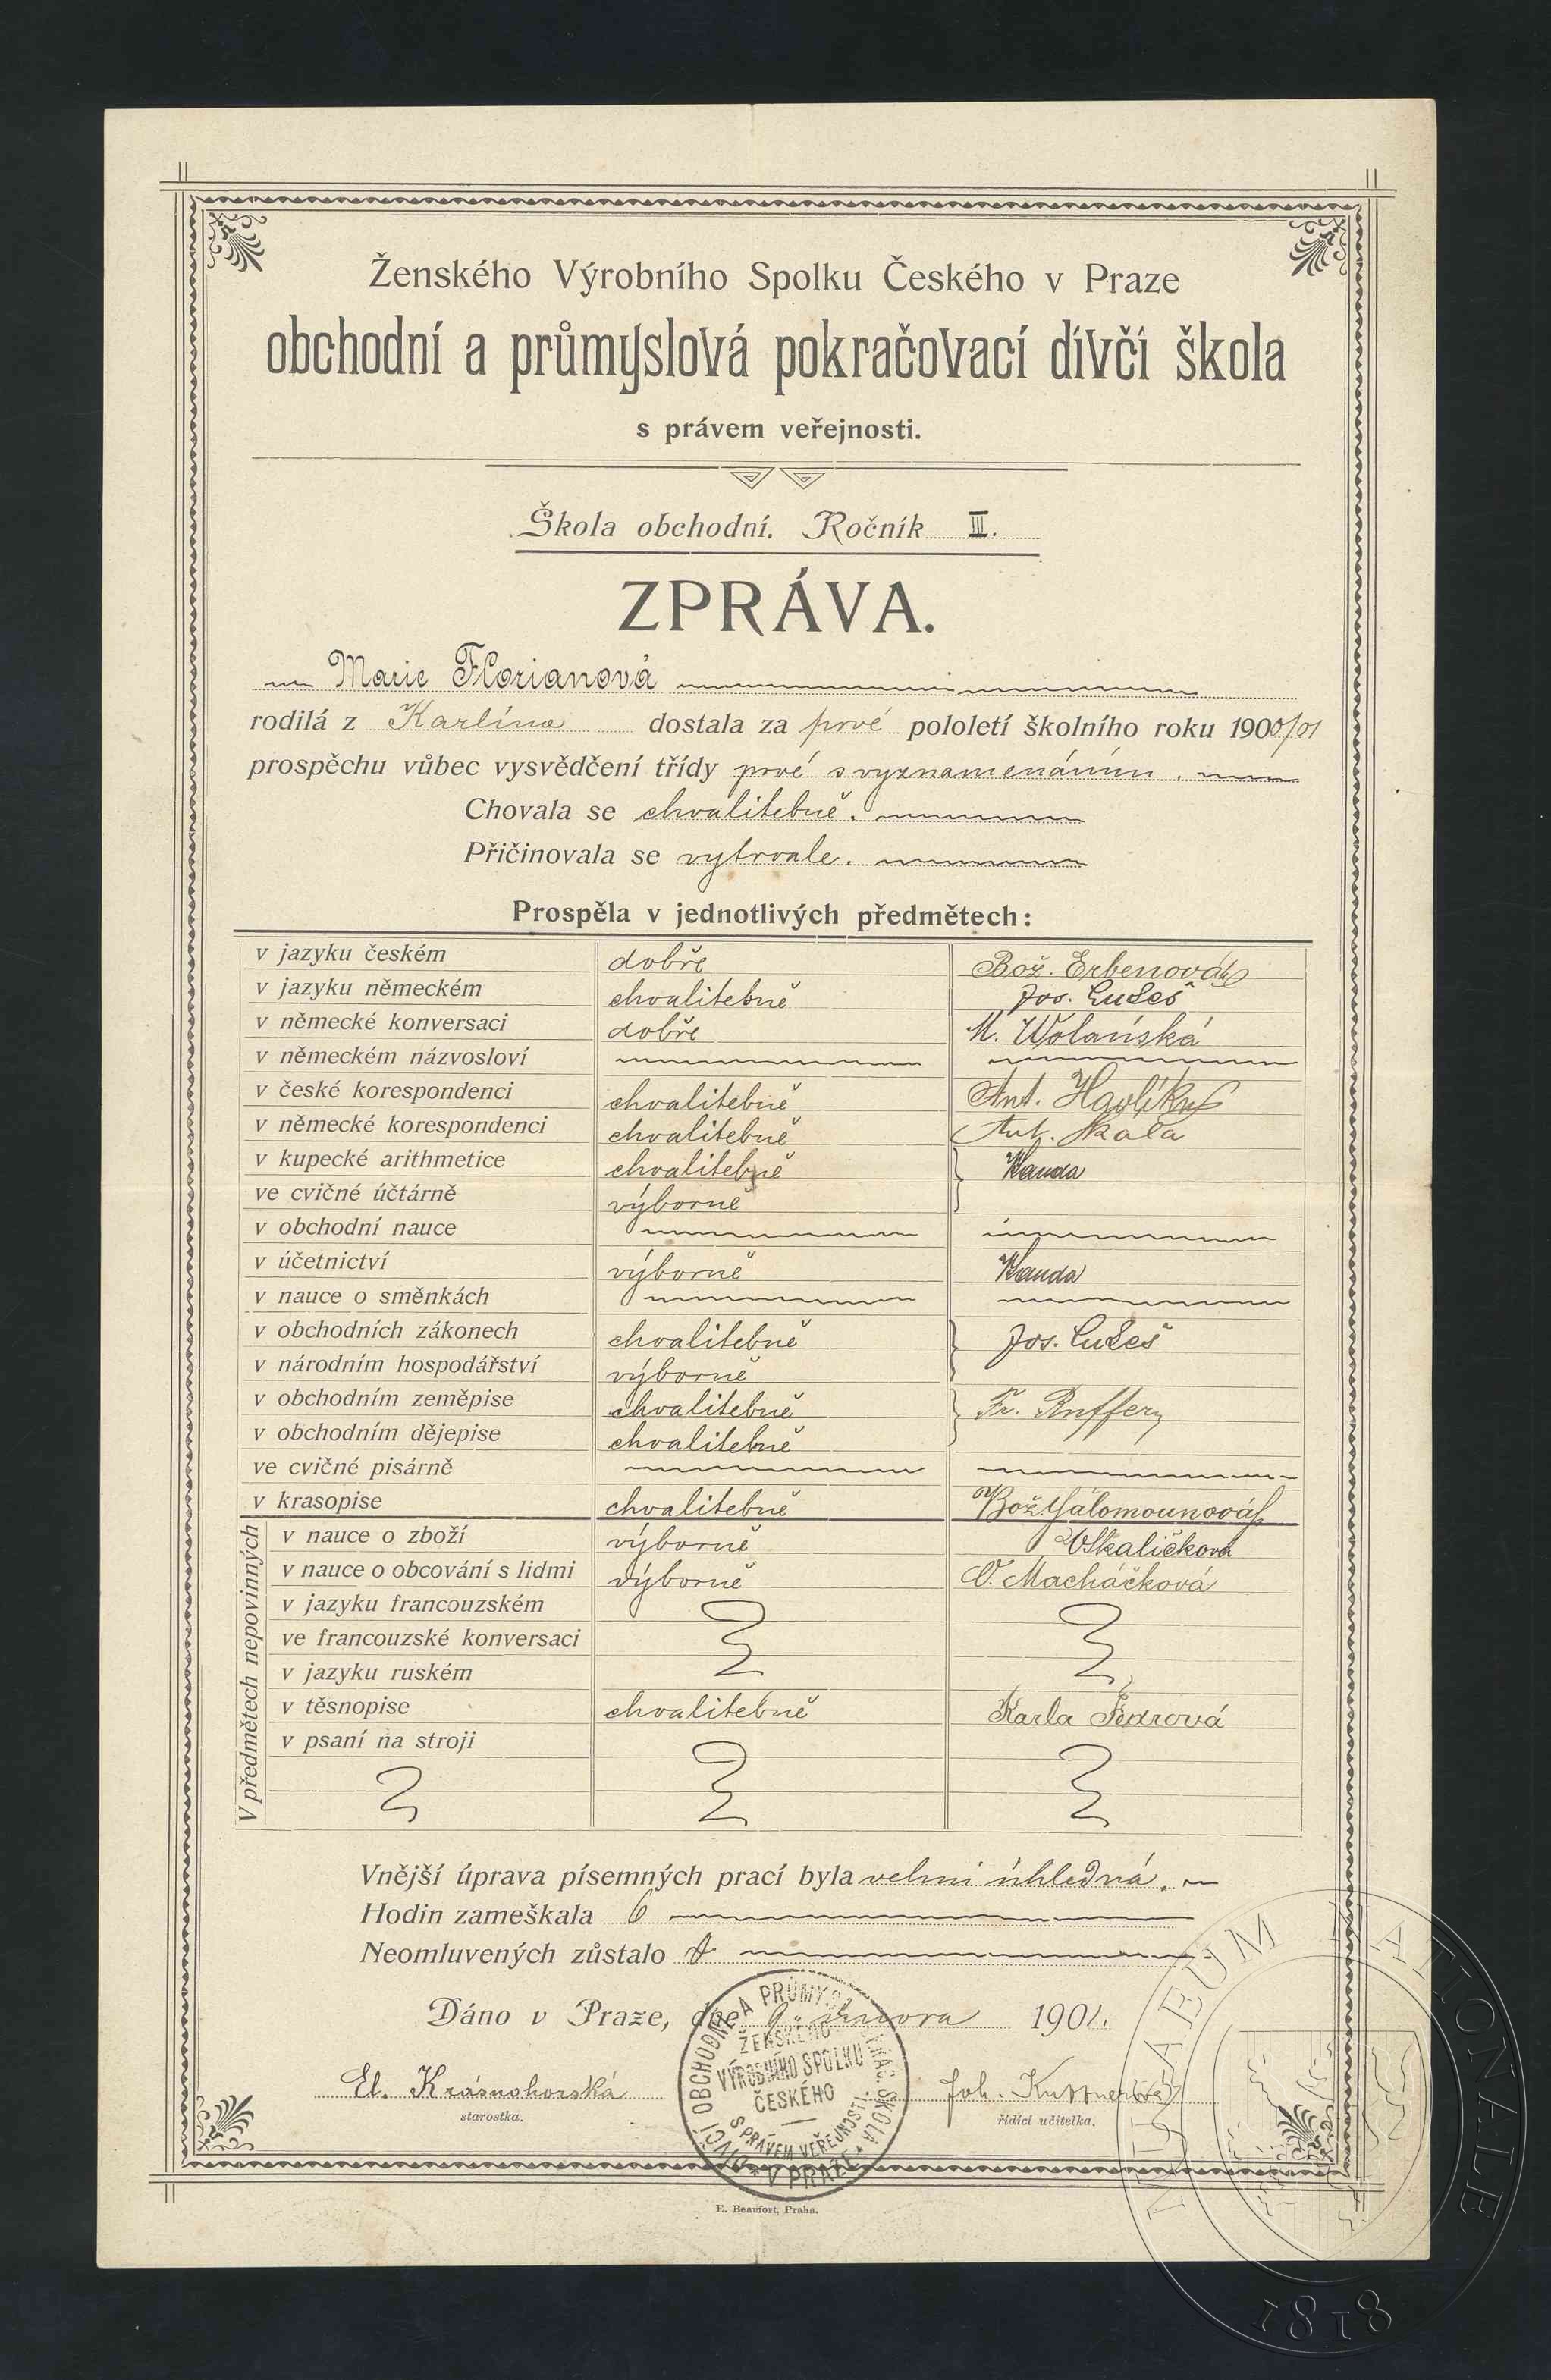 Ženského Výrobního Spolku Českého v Praze
obchodní a průmyslová pokračovací dívčí škola
s právem veřejnosti.
Škola obchodní. Ročník III.
ZPRÁVA.
Marie Florianová
rodilá z Karlína dostala za prvé pololetí školního roku 1900/01
prospěchu vůbec vysvědčení třídy prvé s vyznamenáním.
Chovala se chvalitebně.
Přičinovala se vytrvale.
Prospěla v jednotlivých předmětech:
v jazyku českém dobře Bož. Erbenová
v jazyku německém chvalitebně Jos. Lukeš
v německé konversaci dobře M. Wolańská
v německém názvosloví
v české korespondenci chvalitebně Ant. Havlík
v německé korespondenci chvalitebně Ant. Skála
v kupecké arithmetice chvalitebně Wanda
ve cvičné účtárně výborně
v obchodní nauce
v účetnictví výborně Wanda
v nauce o směnkách
v obchodních zákonech chvalitebně Jos. Lukeš
v národním hospodářství výborně
v obchodním zeměpise chvalitebně Fr. Ruffer
v obchodním dějepise chvalitebně
ve cvičné pisárně
v krasopise chvalitebně Bož. Šalomounová
V předmětech nepovinných
v nauce o zboží výborně V Skaličková
v nauce o obcování s lidmi výborně O. Macháčková
v jazyku francouzském
ve francouzské konversaci
v jazyku ruském
v těsnopise chvalitebně Karla Šedrová
v psaní na stroji
Vnější úprava písemných prací byla velmi úhledná.
Hodin zameškala 6
Neomluvených zůstalo 0
Dáno v Praze, dne 9. února 1901.
El. Krásnohorská Joh. Kuffnerová
starostka. řídící učitelka.
DÍVČÍ OBCHODNÍ A PRŮMYSL. POKRAČ. ŠKOLA
ŽENSKÉHO
VÝROBNÍHO SPOLKU
ČESKÉHO
S PRÁVEM VEŘEJNOSTI.
V PRAZE
E. Beaufort, Praha.
MUSAEUM NATIONALE
1818